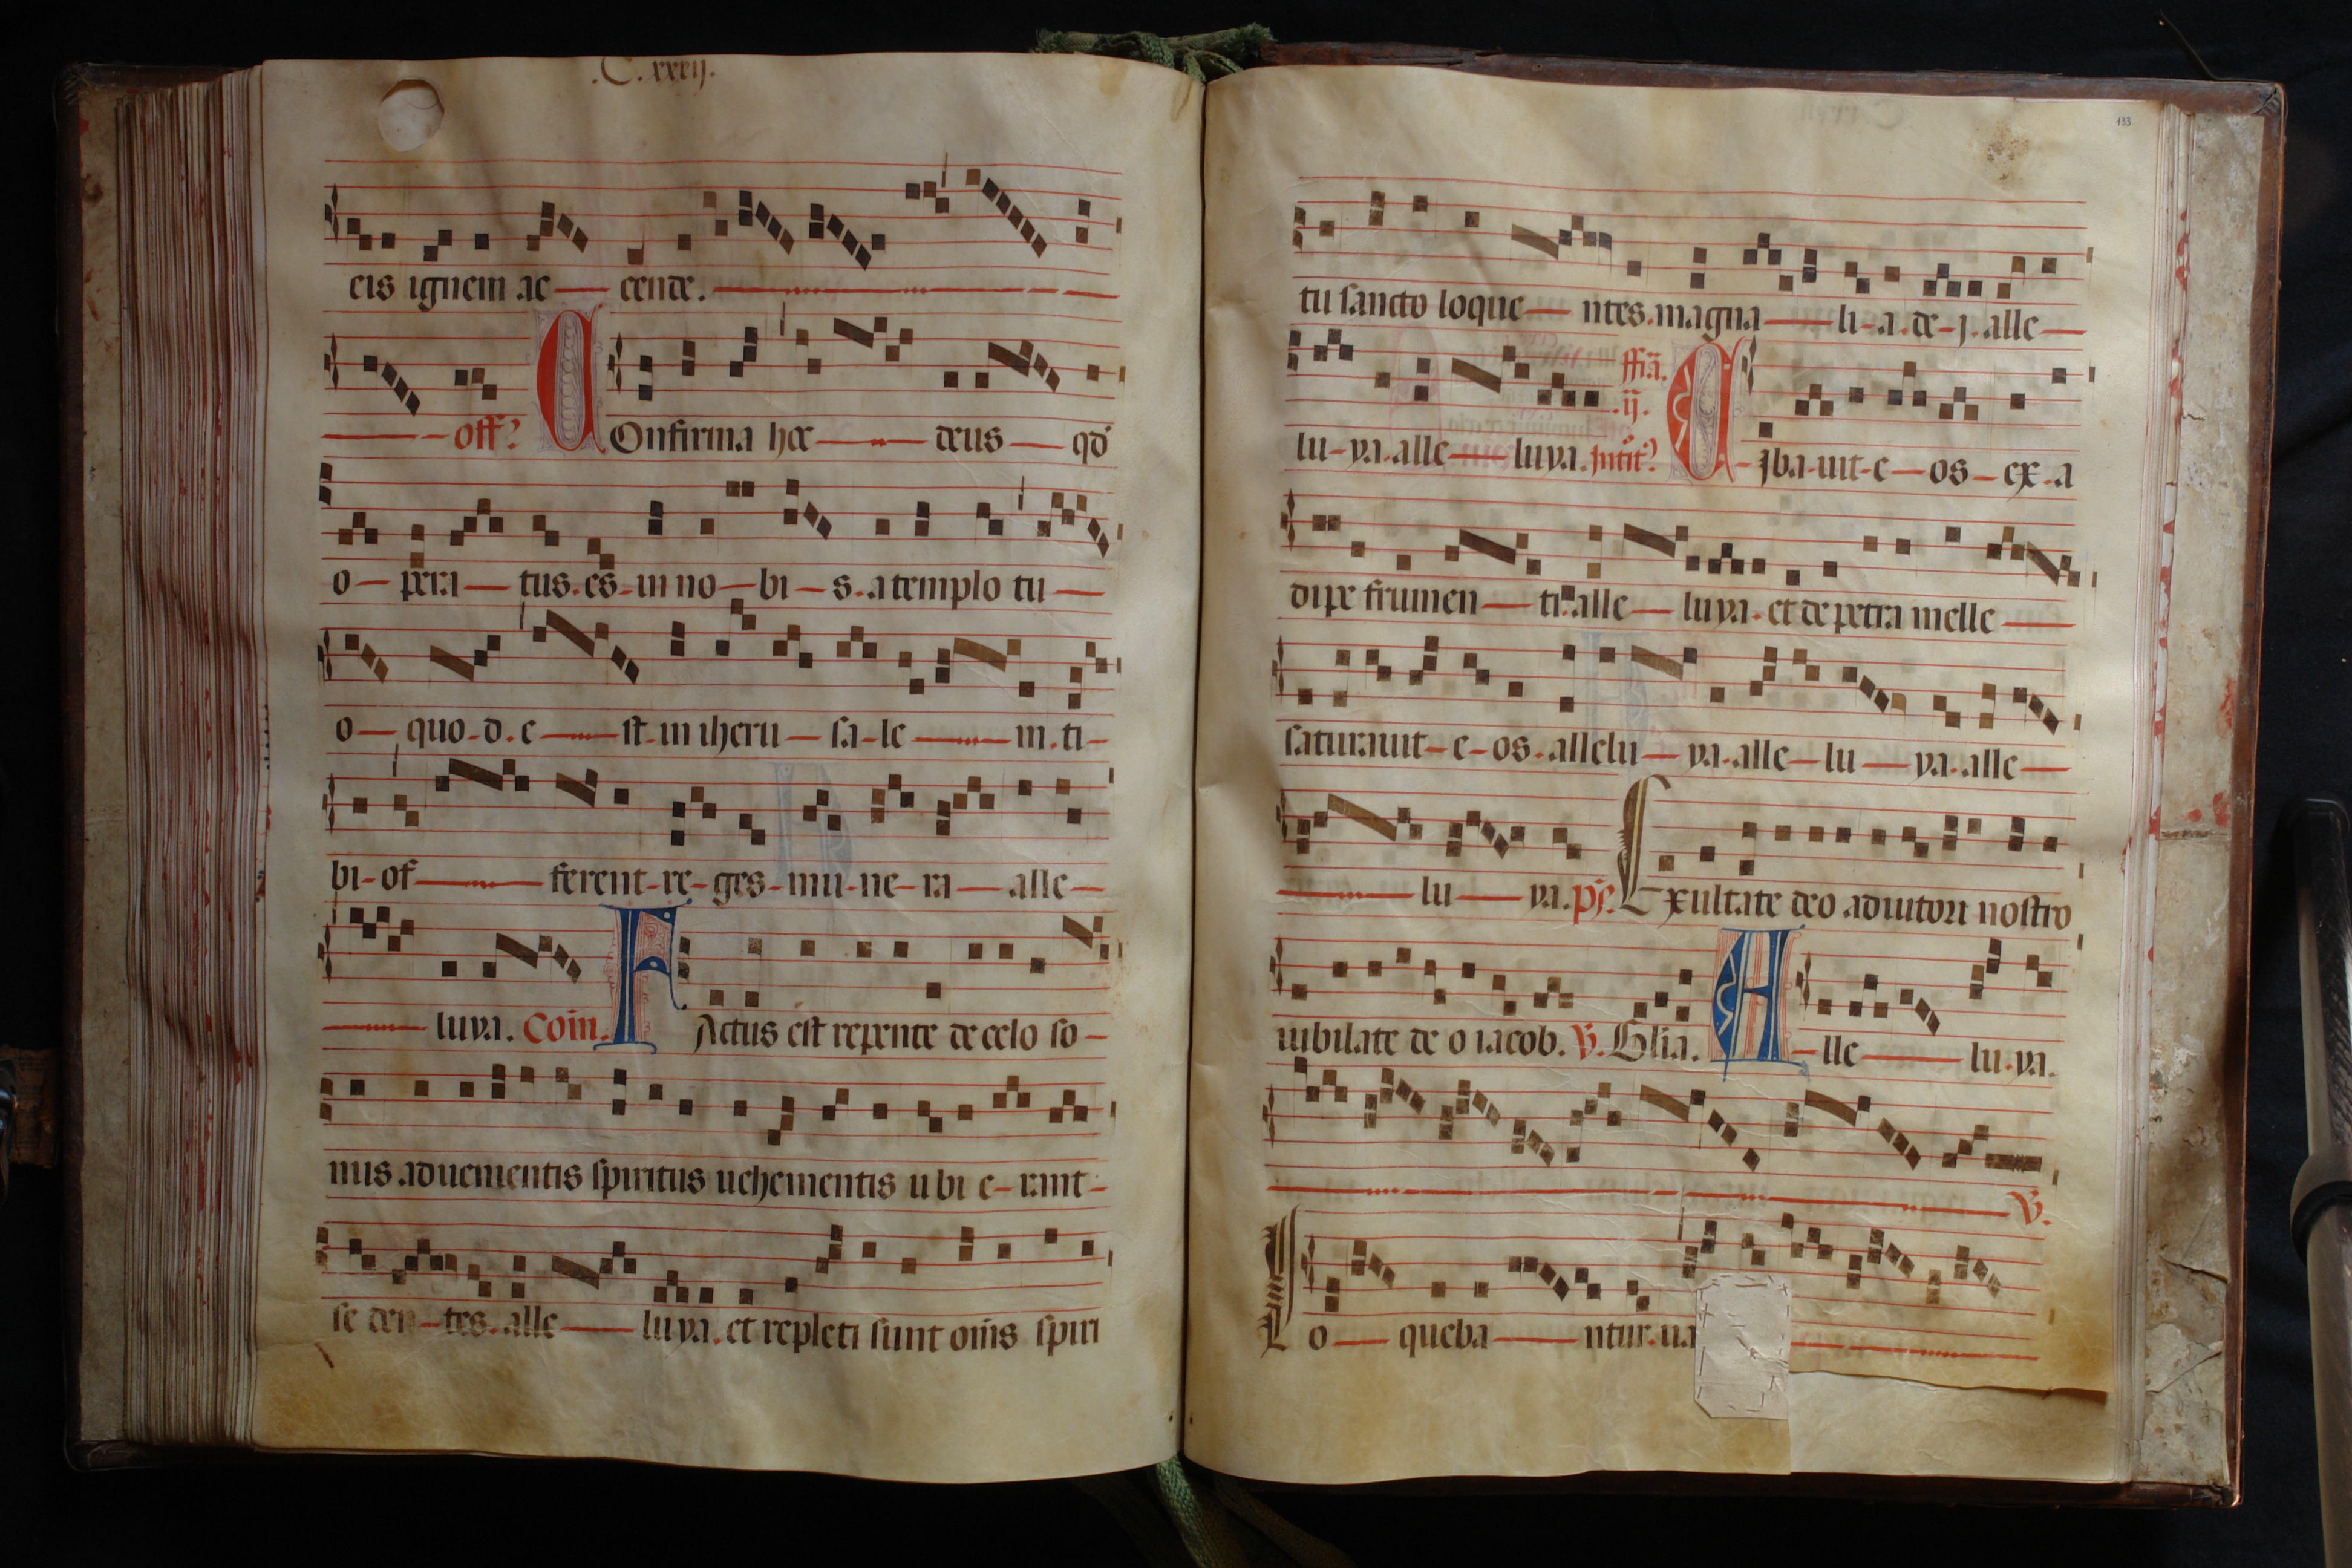 .C.xxxij.
eis ignem ac cende.
off? COnfirma hoc deus qđ
o pera tus. es. in no bi s. a templo tu
o quo. d. e st. in iheru sa le m. ti
bi of ferent re ges mu ne ra alle
luya. Com̄. FActus est repente de celo so
nus aduenientis spiritus uehementis u bi e rant
se den tes. alle luya. et repleti sunt om̄s spiri
133
tu sancto loque ntes. magna li a. de j. alle
ffīa.
.ij.
lu ya. alle luya. Intit? Ciba uit e os ex. a
dipe frumen ti. alle luya. et de petra melle
saturauit e os. allelu ya. alle lu ya. alle
lu ya. ps. Exultate deo adiutori nostro
iubilate de o iacob. V. Glia. Alle lu ya.
V.
Lo queba ntur. ua